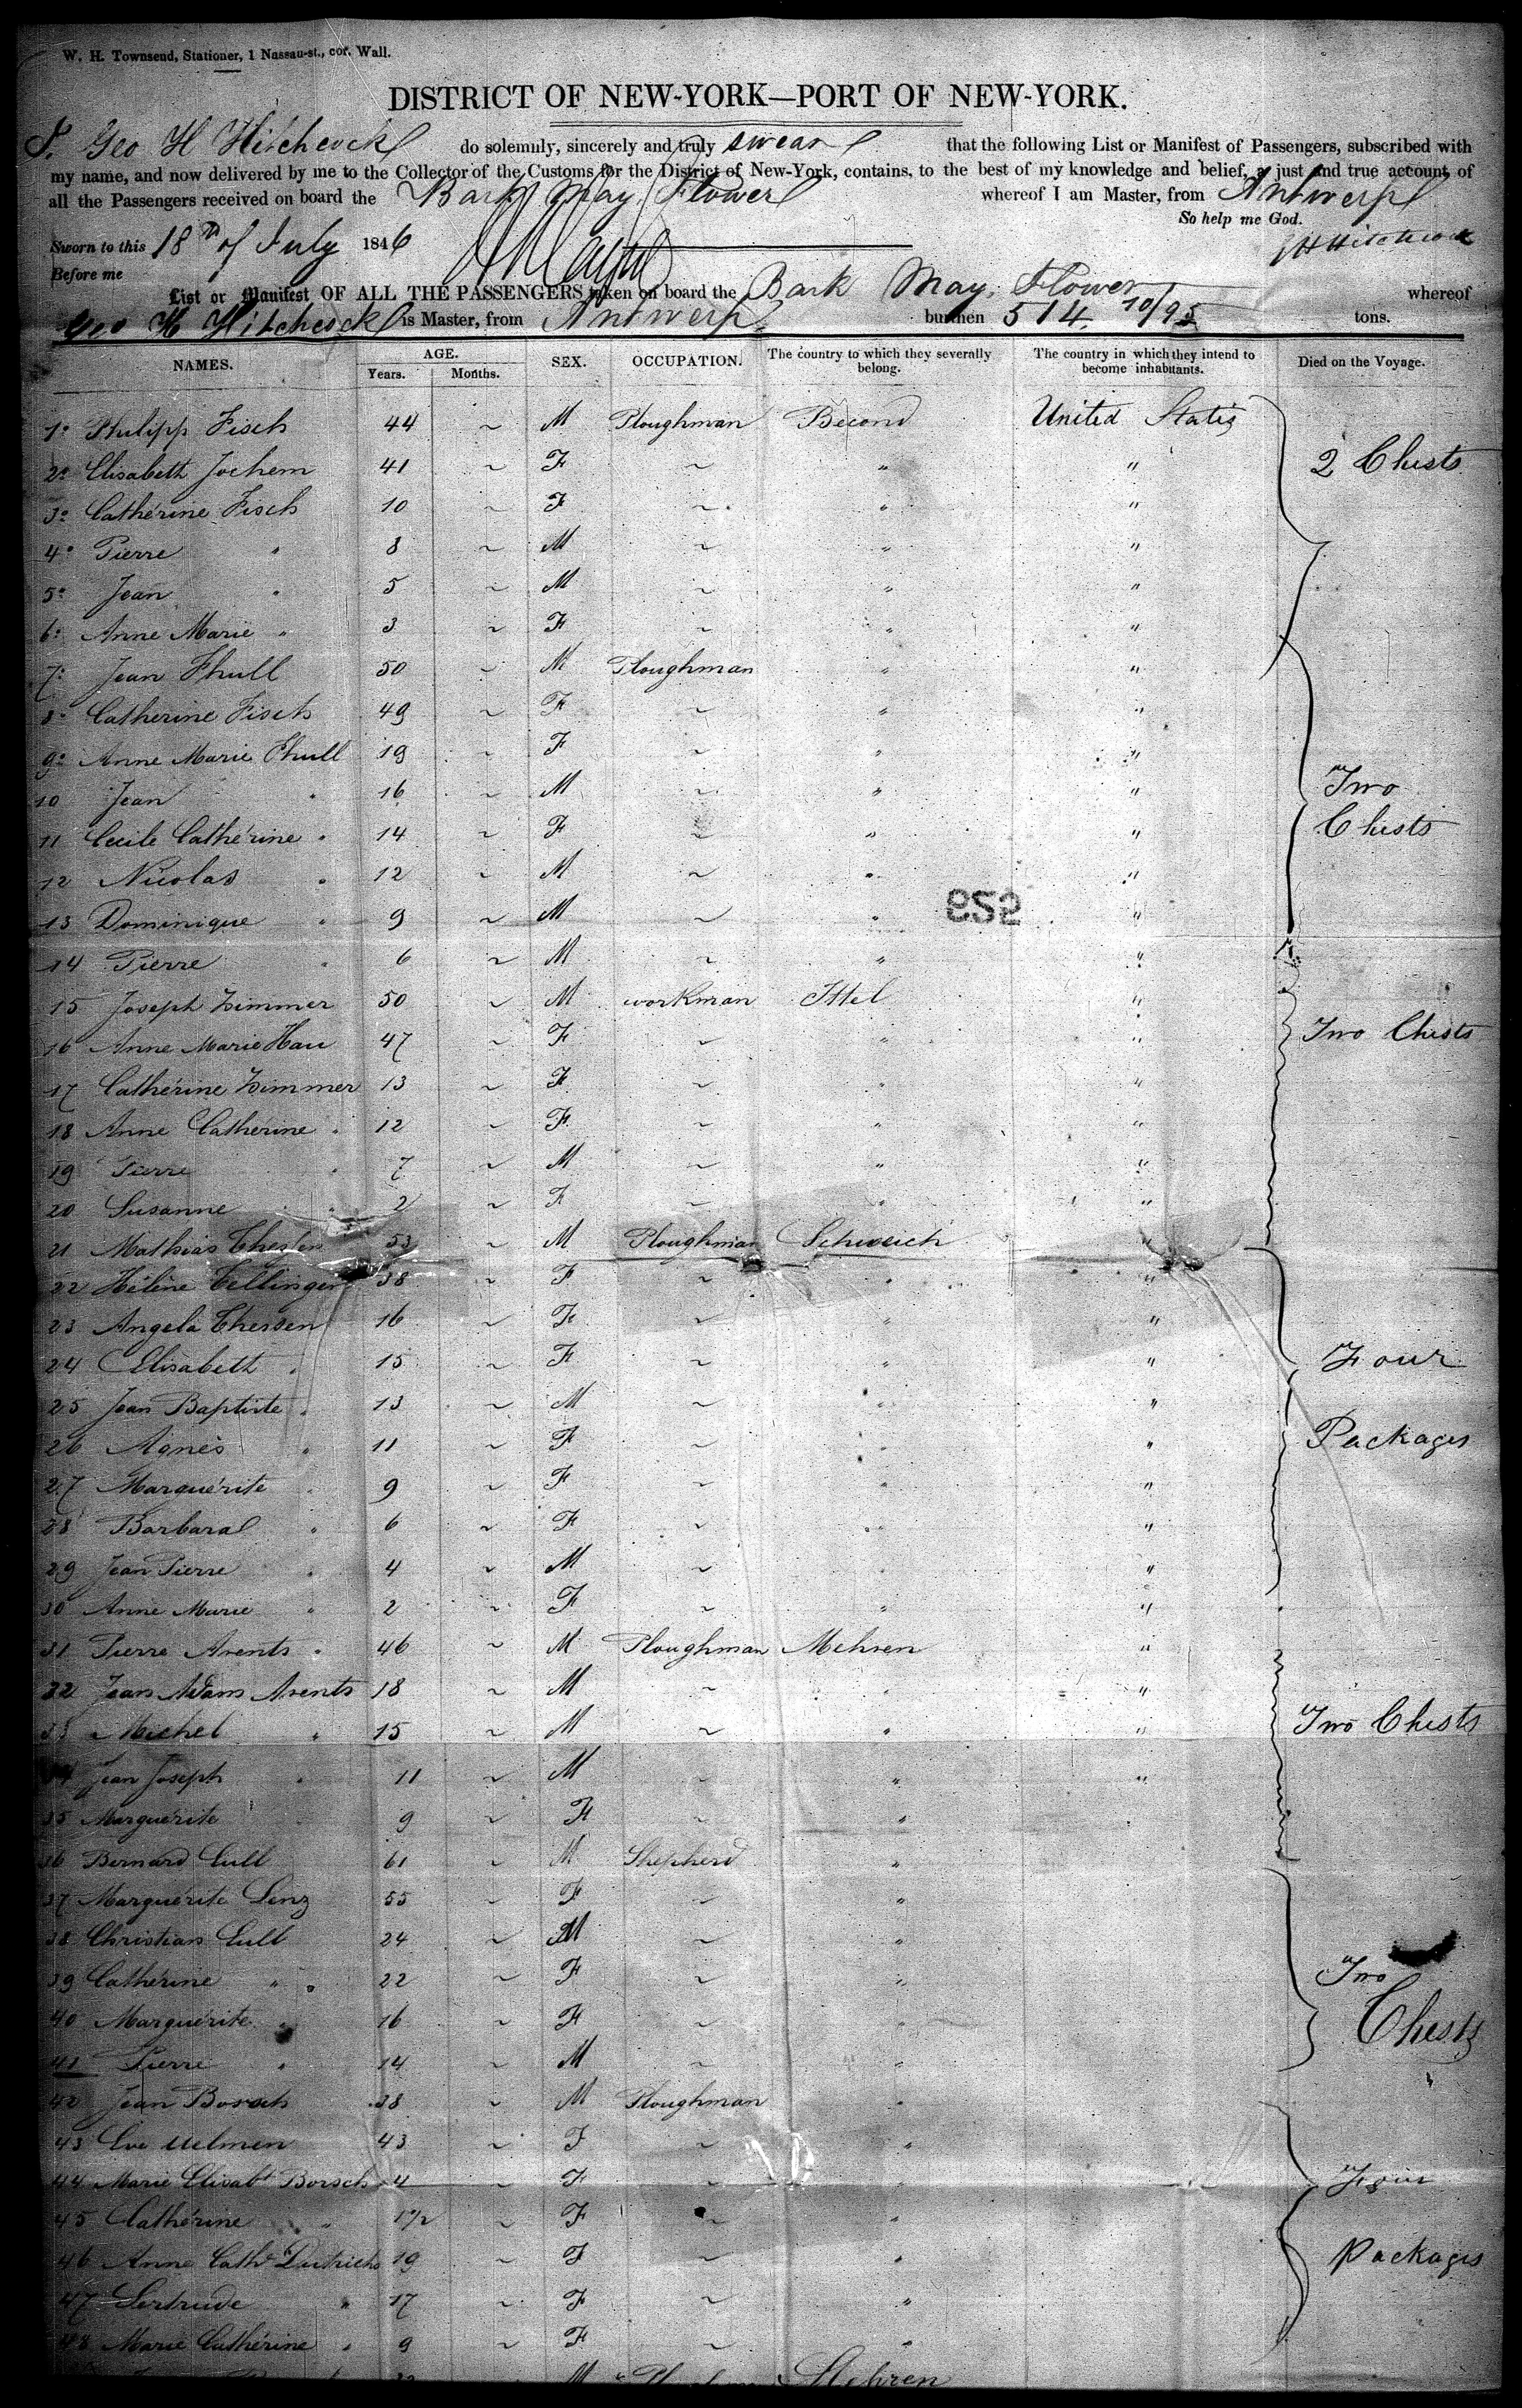 W. H. Townsend, Stationer, 1 Nassau-st., cor. Wall.
DISTRICT OF NEW-YORK—PORT OF NEW-YORK.
I, Geo H Hitchcock do solemnly, sincerely and truly swear that the following List or Manifest of Passengers, subscribed with
my name, and now delivered by me to the Collector of the Customs for the District of New-York, contains, to the best of my knowledge and belief, a just and true account of
all the Passengers received on board the Bark May Flower whereof I am Master, from Antwerp
So help me God.
Sworn to this 18th of July 1846 Hitchcock
Before me
List or Manifest OF ALL THE PASSENGERS taken on board the Bark May Flower whereof
Geo H Hitchcock is Master, from Antwerp burthen 514 10/95 tons.
NAMES. AGE. SEX. OCCUPATION. The country to which they severally belong. The country in which they intend to become inhabitants. Died on the Voyage.
Years. Months.
1 Philipp Fisch 44 ~ M Ploughman Becond United States
2 Elisabeth Jochem 41 ~ F ~ " " 2 Chests
3 Cathérine Fisch 10 ~ F ~ " "
4 Pierre " 8 ~ M ~ " "
5 Jean " 5 ~ M ~ " "
6 Anne Marie " 3 ~ F ~ " "
7 Jean Thull 50 ~ M Ploughman " "
8 Catherine Fisch 49 ~ F ~ " "
9 Anne Marie Thull 19 ~ F ~ " "
10 Jean " 16 ~ M ~ " " Two
11 Cecile Cathérine " 14 ~ F ~ " " Chests
12 Nicolas " 12 ~ M ~ " "
13 Dominique " 9 ~ M ~ " "
14 Pierre " 6 ~ M ~ " "
15 Joseph Zimmer 50 ~ M workman Ittel "
16 Anne Marie Hau 47 ~ F ~ " " Two Chests
17 Cathérine Zimmer 13 ~ F ~ " "
18 Anne Cathérine " 12 ~ F ~ " "
19 Pierre " 7 ~ M ~ " "
20 Susanne " 2 ~ F ~ " "
21 Mathias 53 ~ M Ploughman Schweich "
22 Hélène Tellinger 38 ~ F ~ " "
23 Angela Thersen 16 ~ F ~ " "
24 Elisabeth " 15 ~ F ~ " " Four
25 Jean Baptiste " 13 ~ M ~ " "
26 Agnès " 11 ~ F ~ " " Packages
27 Marguérite " 9 ~ F ~ " "
28 Barbara " 6 ~ F ~ " "
29 Jean Pierre " 4 ~ M ~ " "
30 Anne Marie " 2 ~ F ~ " "
31 Pierre Arents " 46 ~ M Ploughman Mehren "
32 Jean Adam Arents 18 ~ M ~ " "
33 Michel " 15 ~ M ~ " " Two Chests
34 Jean Joseph " 11 ~ M ~ " "
35 Marguérite 9 ~ F ~ "
36 Bernard Cull 61 ~ M Shepherd "
37 Marguérite Lenz 55 ~ F ~ "
38 Christian Cull 24 ~ M ~ "
39 Cathérine " 22 ~ F ~ " Two
40 Marguérite " 16 ~ F ~ " Chests
41 Pierre " 14 ~ M ~ "
42 Jean Borsch 38 ~ M Ploughman "
43 Eve Uelmen 43 ~ F ~ "
44 Marie Elisabt Borsch 4 ~ F ~ Four
45 Cathérine " 1 1/2 ~ F ~ "
46 Anne Cath. 19 ~ F ~ " Packages
47 Gertrude " 17 ~ F ~ "
48 Marie Cathérine " 9 ~ F ~ "
M